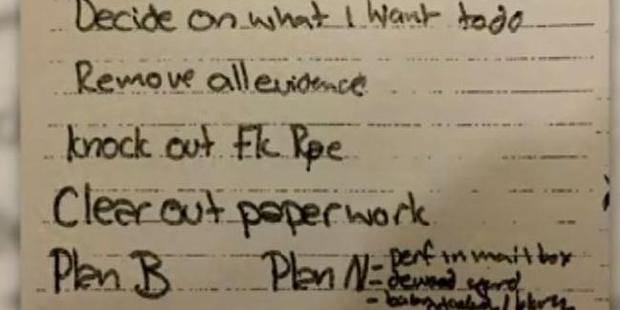 Decide on what I want todo
Remove all evidence
knock out Fk Rpe
Clear out paperwork
Plan B Plan N = perf in mailbox